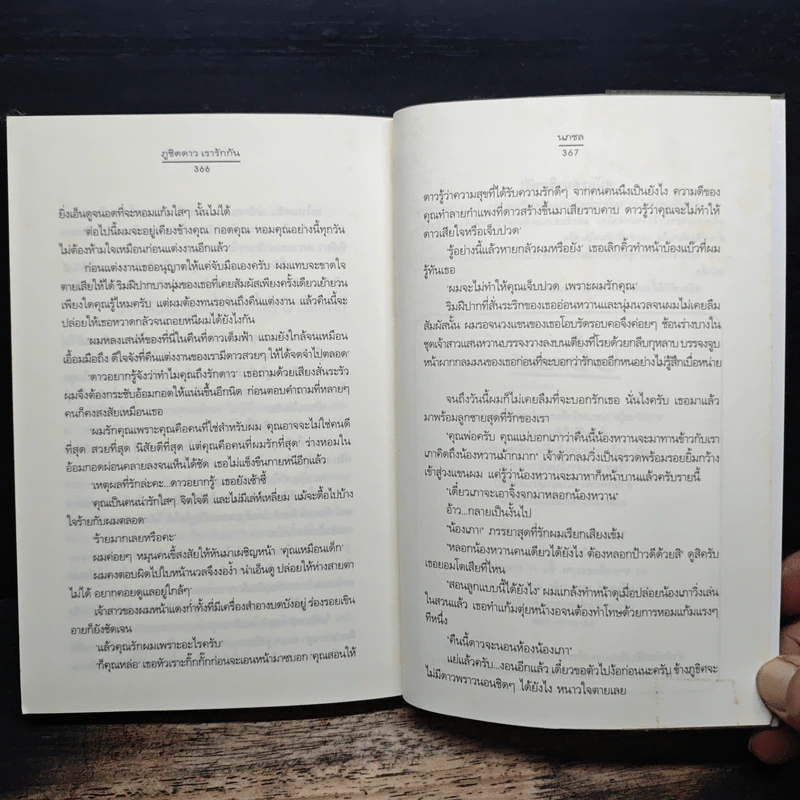 ภูชิตดาว เรารักกัน
366
ยิ่งเอ็นดูจนอดที่จะหอมแก้มใสๆ นั้นไม่ได้
'ต่อไปนี้ผมจะอยู่เคียงข้างคุณ กอดคุณ หอมคุณอย่างนี้ทุกวัน
ไม่ต้องห้ามใจเหมือนก่อนแต่งงานอีกแล้ว'
ก่อนแต่งงานเธออนุญาตให้แค่จับมือเองครับ ผมแทบจะขาดใจ
ตายเสียให้ได้ ริมฝีปากบางนุ่มของเธอที่เคยสัมผัสเพียงครั้งเดียวเย้ายวน
เพียงใดคุณรู้ไหมครับ แต่ผมต้องทนรอจนถึงคืนแต่งงาน แล้วคืนนี้จะ
ปล่อยให้เธอหวาดกลัวจนถอยหนีผมได้ยังไงกัน
'ผมหลงเสน่ห์ของที่นี่ในคืนที่ดาวเต็มฟ้า แถมยังใกล้จนเหมือน
เอื้อมมือถึง ดีใจจังที่คืนแต่งงานของเรามีดาวสวยๆ ให้ได้จดจำไปตลอด'
'ดาวอยากรู้จังว่าทำไมคุณถึงรักดาว' เธอถามด้วยเสียงสั่นระรัว
ผมจึงต้องกระชับอ้อมกอดให้แน่นขึ้นอีกนิด ก่อนตอบคำถามที่หลายๆ
คนก็คงสงสัยเหมือนเธอ
'ผมรักคุณเพราะคุณคือคนที่ใช่สำหรับผม คุณอาจจะไม่ใช่คนดี
ที่สุด สวยที่สุด นิสัยดีที่สุด แต่คุณคือคนที่ผมรักที่สุด' ร่างหอมใน
อ้อมกอดผ่อนคลายลงจนเห็นได้ชัด เธอไม่แข็งขืนกายหนีอีกแล้ว
'เหตุผลที่รักล่ะคะ...ดาวอยากรู้' เธอยังเซ้าซี้
'คุณเป็นคนน่ารักใสๆ จิตใจดี และไม่มีเล่ห์เหลี่ยม แม้จะดื้อไปบ้าง
ใจร้ายกับผมตลอด'
'ร้ายมากเลยหรือคะ'
ผมค่อยๆ หมุนคนขี้สงสัยให้หันมาเผชิญหน้า 'คุณเหมือนเด็ก'
ผมคงตอบผิดไปใบหน้านวลจึงงอง้ำ 'น่าเอ็นดู ปล่อยให้ห่างสายตา
ไม่ได้ อยากคอยดูแลอยู่ใกล้ๆ'
เจ้าสาวของผมหน้าแดงก่ำทั้งที่มีเครื่องสำอางบดบังอยู่ ร่องรอยเขิน
อายก็ยังชัดเจน
'แล้วคุณรักผมเพราะอะไรครับ'
'ก็คุณหล่อ' เธอหัวเราะกิ๊กกั๊กก่อนจะเอนหน้ามาซบอก 'คุณสอนให้
นภชล
367
ดาวรู้ว่าความสุขที่ได้รับความรักดีๆ จากคนคนนึงเป็นยังไง ความดีของ
คุณทำลายกำแพงที่ดาวสร้างขึ้นมาเสียราบคาบ ดาวรู้ว่าคุณจะไม่ทำให้
ดาวเสียใจหรือเจ็บปวด'
'รู้อย่างนี้แล้วหายกลัวผมหรือยัง' เธอเลิกคิ้วทำหน้าบ้องแบ๊วที่ผม
รู้ทันเธอ
'ผมจะไม่ทำให้คุณเจ็บปวด เพราะผมรักคุณ'
ริมฝีปากที่สั่นระริกของเธออ่อนหวานและนุ่มนวลจนผมไม่เคยลืม
สัมผัสนั้น ผมรอจนวงแขนของเธอโอบรัดรอบคอจึงค่อยๆ ช้อนร่างบางใน
ชุดเจ้าสาวแสนหวานบรรจงวางลงบนเตียงที่โรยด้วยกลีบกุหลาบ บรรจงจูบ
หน้าผากกลมมนของเธอก่อนที่จะบอกว่ารักเธออีกหนอย่างไม่รู้สึกเบื่อหน่าย
จนถึงวันนี้ผมก็ไม่เคยลืมที่จะบอกรักเธอ นั่นไงครับ เธอมาแล้ว
มาพร้อมลูกชายสุดที่รักของเรา
"คุณพ่อครับ คุณแม่บอกเภาว่าคืนนี้น้องหวานจะมาทานข้าวกับเรา
เภาคิดถึงน้องหวานม้ากมาก" เจ้าตัวกลมวิ่งเป็นจรวดพร้อมรอยยิ้มกว้าง
เข้าสู่วงแขนผม แค่รู้ว่าน้องหวานจะมาหาก็หน้าบานแล้วครับรายนี้
"เดี๋ยวเภาจะเอาจิ้งจกมาหลอกน้องหวาน"
อ้าว...กลายเป็นงั้นไป
"น้องเภา!" ภรรยาสุดที่รักผมเรียกเสียงเข้ม
"หลอกน้องหวานคนเดียวได้ยังไง ต้องหลอกป้าวดีด้วยสิ" ดูสิครับ
เธอยอมโตเสียที่ไหน
"สอนลูกแบบนี้ได้ยังไง" ผมแกล้งทำหน้าดุเมื่อปล่อยน้องเภาวิ่งเล่น
ในสวนแล้ว เธอทำแก้มตุ่ยหน้างอจนต้องทำโทษด้วยการหอมแก้มแรงๆ
ทีหนึ่ง
"คืนนี้ดาวจะนอนห้องน้องเภา"
แย่แล้วครับ...งอนอีกแล้ว เดี๋ยวขอตัวไปง้อก่อนนะครับ ข้างภูธิศจะ
ไม่มีดาวพราวนอนชิดๆ ได้ยังไง หนาวใจตายเลย